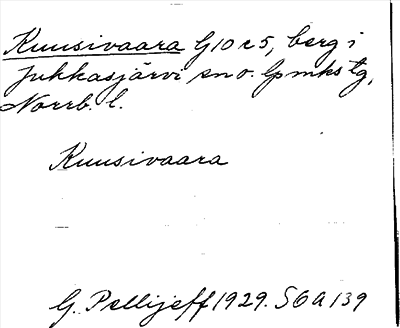 Kuusivaara G10 c 5, berg i
Jukkasjärvi sn o. lpmks tg,
Norrb. l.
Kuusivaara
G. Pellijeff 1929. SOA 139